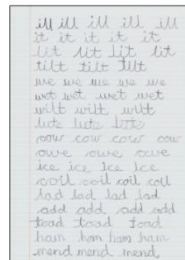 ill ill ill ill ill
it it it it it
lit lit lit lit
tilt tilt tilt
we we we we we
wet wet wet wet
wilt wilt wilt
lute lute lute
cow cow cow cow
owe owe owe
ice ice ice ice
coil coil coil coil
lad lad lad lad
add add add add
toad toad toad
ham ham ham ham
mend mend mend